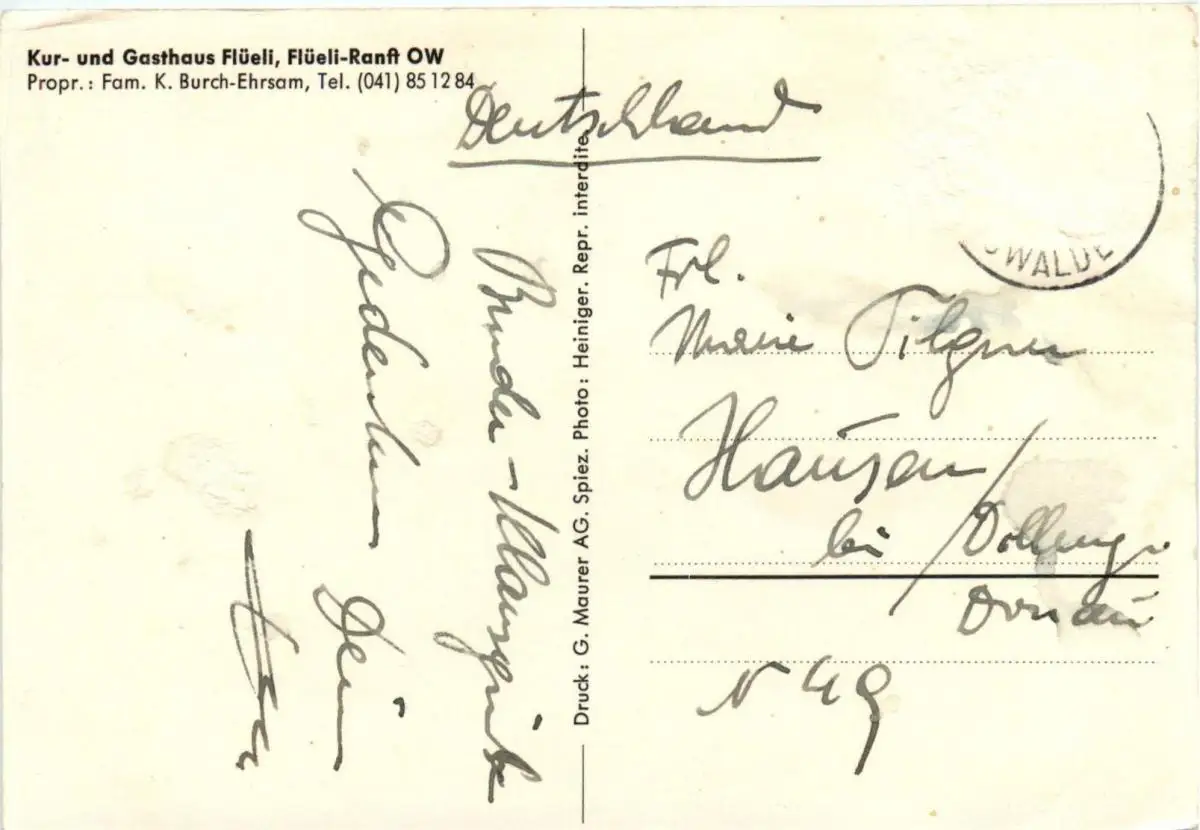 Kur- und Gasthaus Flüeli, Flüeli-Ranft OW
Propr.: Fam. K. Burch-Ehrsam, Tel. (041) 85 12 84
Deutschland
Bruder-Klausgrüße
Gedenken
Dein
Druck: G. Maurer AG. Spiez. Photo: Heiniger. Repr. interdite.
WALDE
Frl.
Maria Tilgner
Hausen/
bei
Donau
N 49